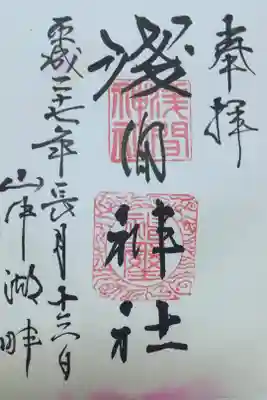 奉拝
浅間神社
平成二十七年長月十六日
山中湖畔
浅間神社